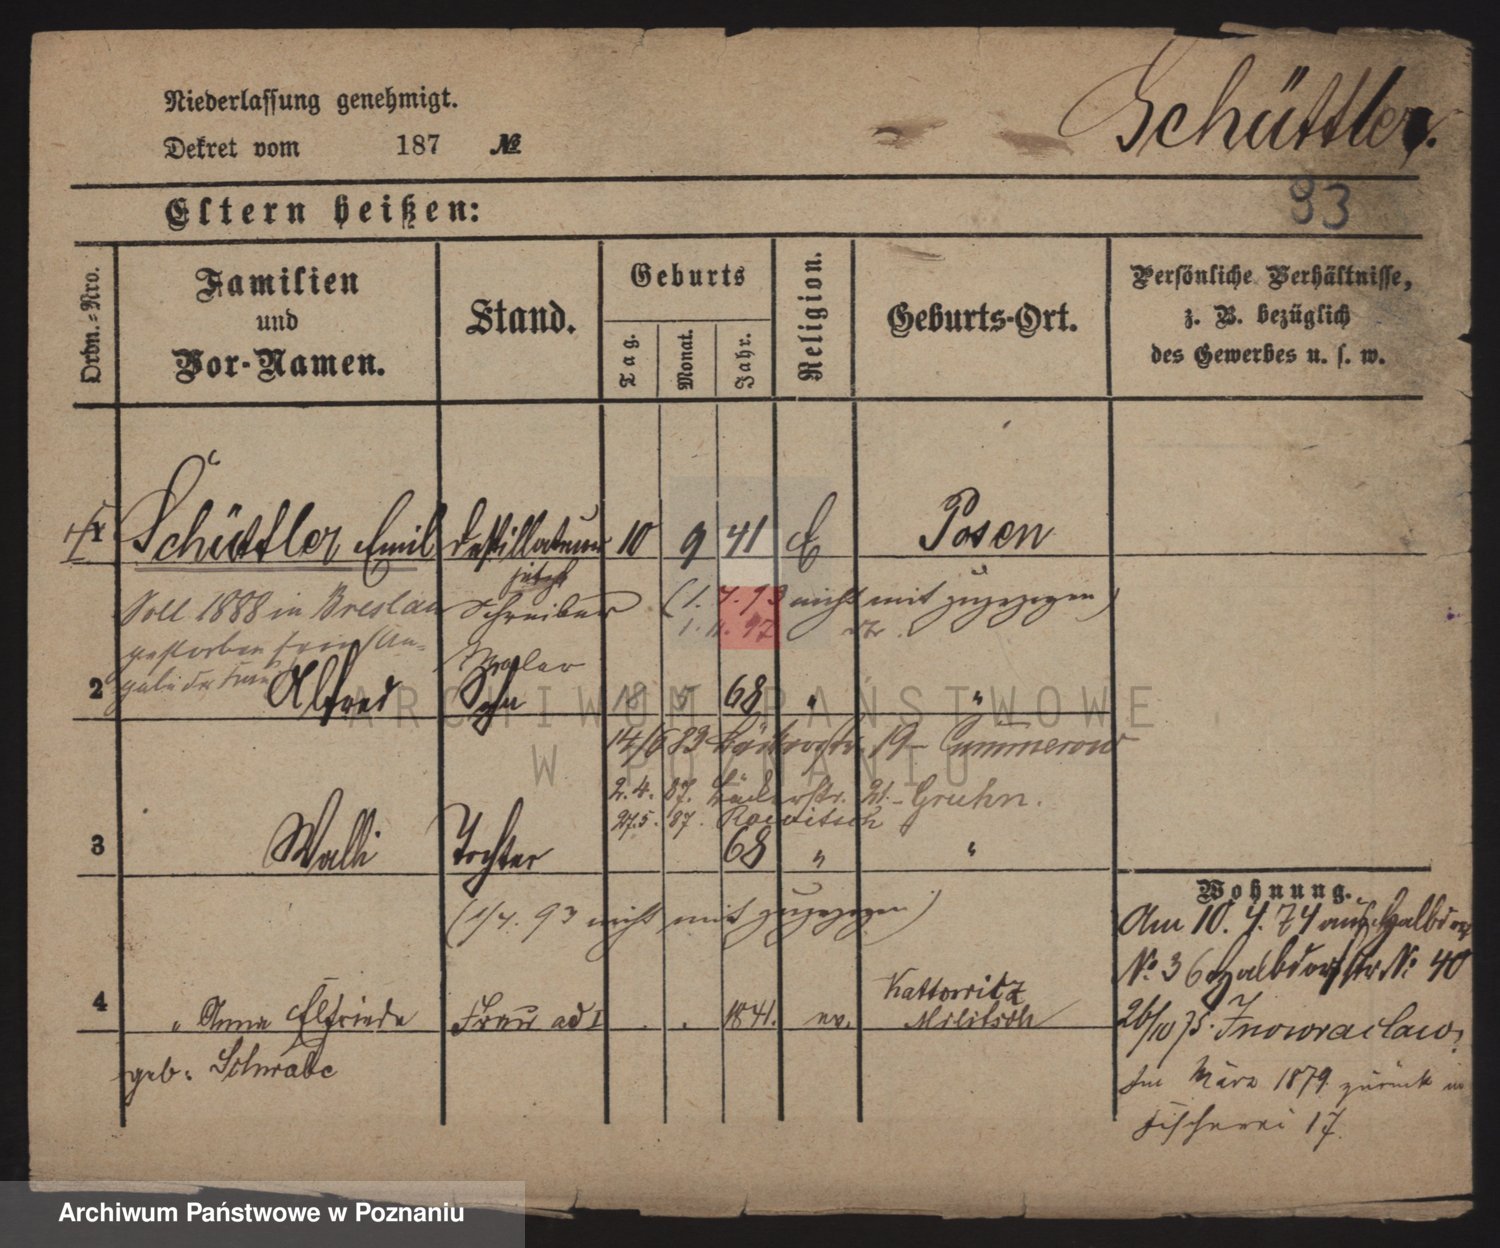 Niederlassung genehmigt.
Dekret vom 187 №
Schüttler.
93
Eltern heißen:
Ordn.-Nro.
Familien
und
Vor-Namen.
Stand.
Geburts
Tag.
Monat.
Jahr.
Religion.
Geburts-Ort.
Persönliche Verhältnisse,
z. B. bezüglich
des Gewerbes u. s. w.
1 Schüttler Emil Destillateur 10 9 41 E Posen
jetzt
Soll 1888 in Breslau Schreiber (1. 4. 93 nicht mit zugezogen)
gestorben sein An-
Maler
2 Alfred Sohn 18 5 68 " "
14/6 83 19 Cummerow
2. 4. 87. Bäckerstr. 21. Gruhn.
27. 5. 87. Rawitsch
3 Walli Tochter 68 " "
(1/4. 93 nicht mit zugezogen)
Wohnung.
Am 10. 4. 74 aus Halbdorf
No 36 Halbdorfstr No 40
4 " Anna Elfriede Frau ad 1 . . 1841. ev. Kattowitz
Militsch
26/10 75. Inowraclaw.
geb: Schwabe
Im März 1879 zurück in
Fischerei 17.
ARCHIWUM PAŃSTWOWE
W POZNANIU
Archiwum Państwowe w Poznaniu